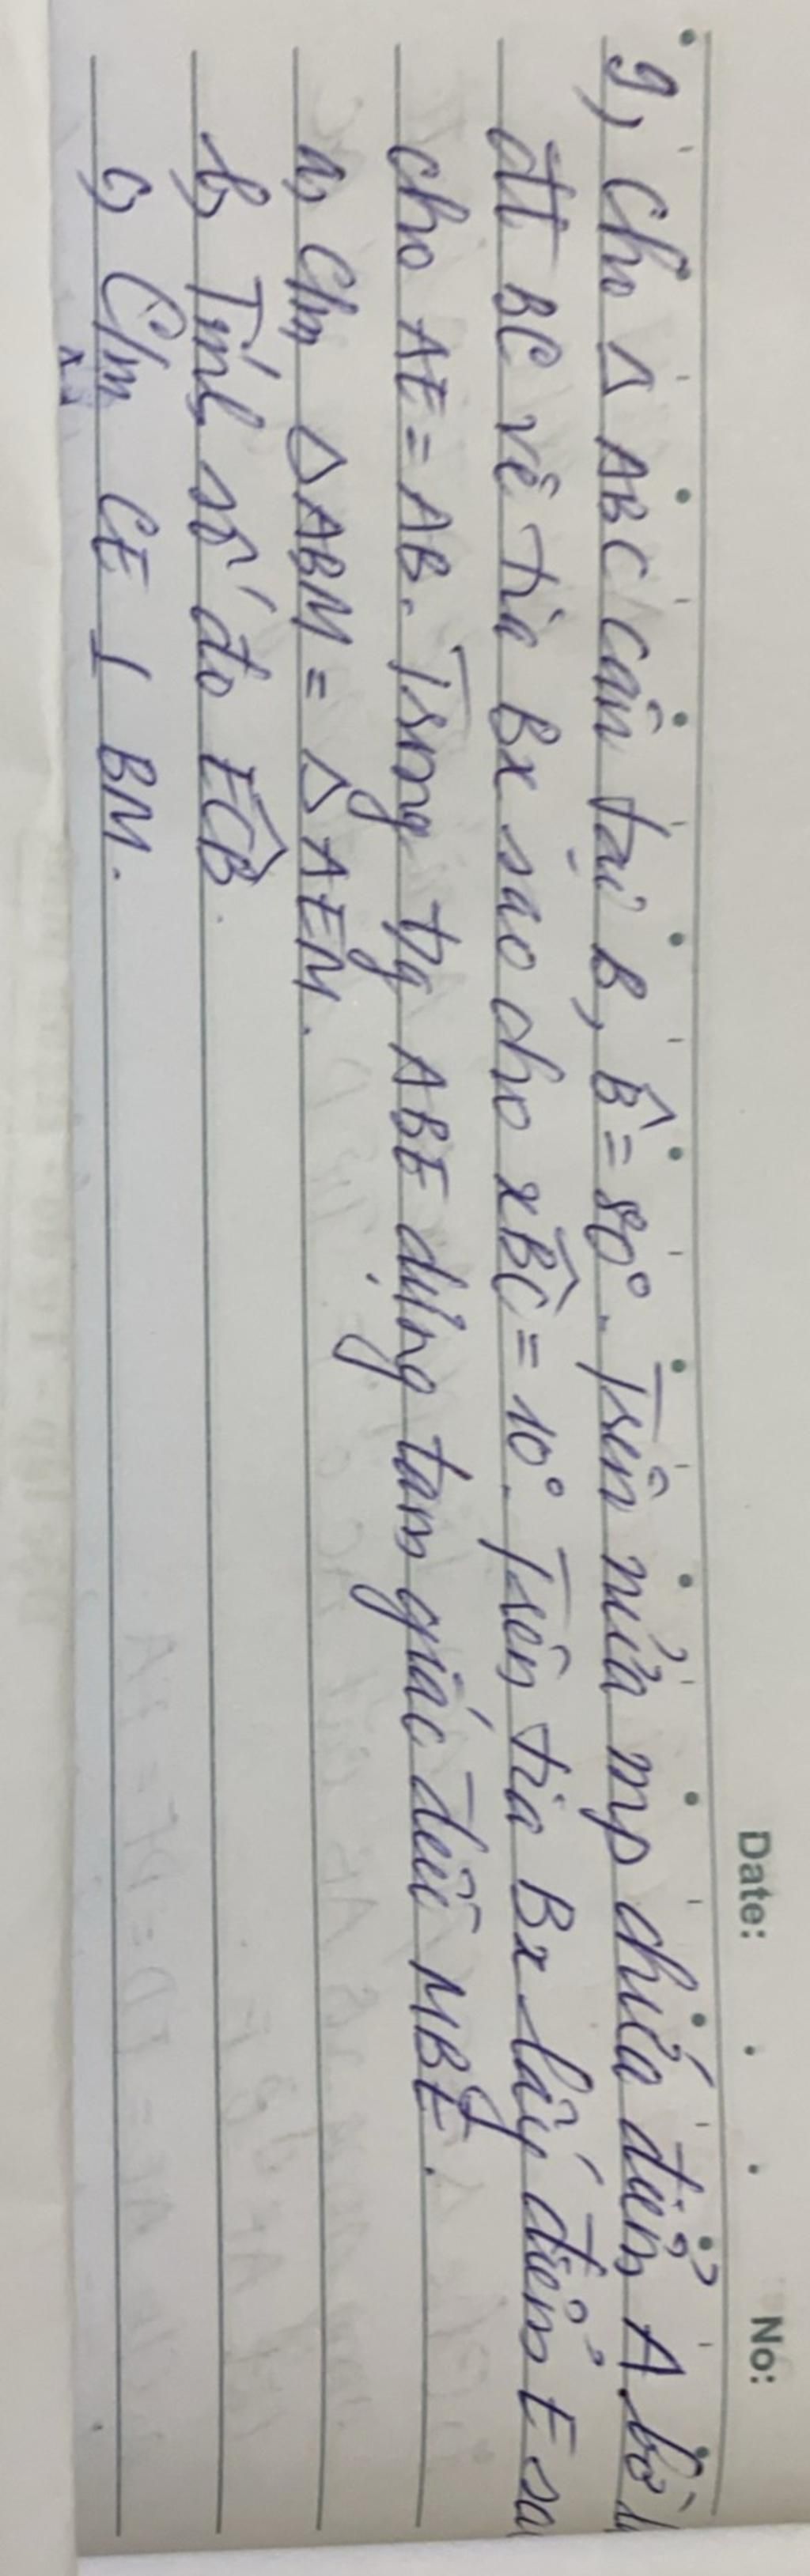 Date: No:
9, Cho △ ABC cân tại B, B̂ = 80°. Trên nửa mp chứa điểm A bờ
đt BC vẽ tia Bx sao cho xB̂C = 10°. Trên tia Bx lấy điểm E sa
cho AE = AB. Trong tg ABE dựng tam giác đều MBE.
a, C/m △ABM = △AEM.
b, Tính số đo EĈB.
c, C/m CE ⊥ BM.